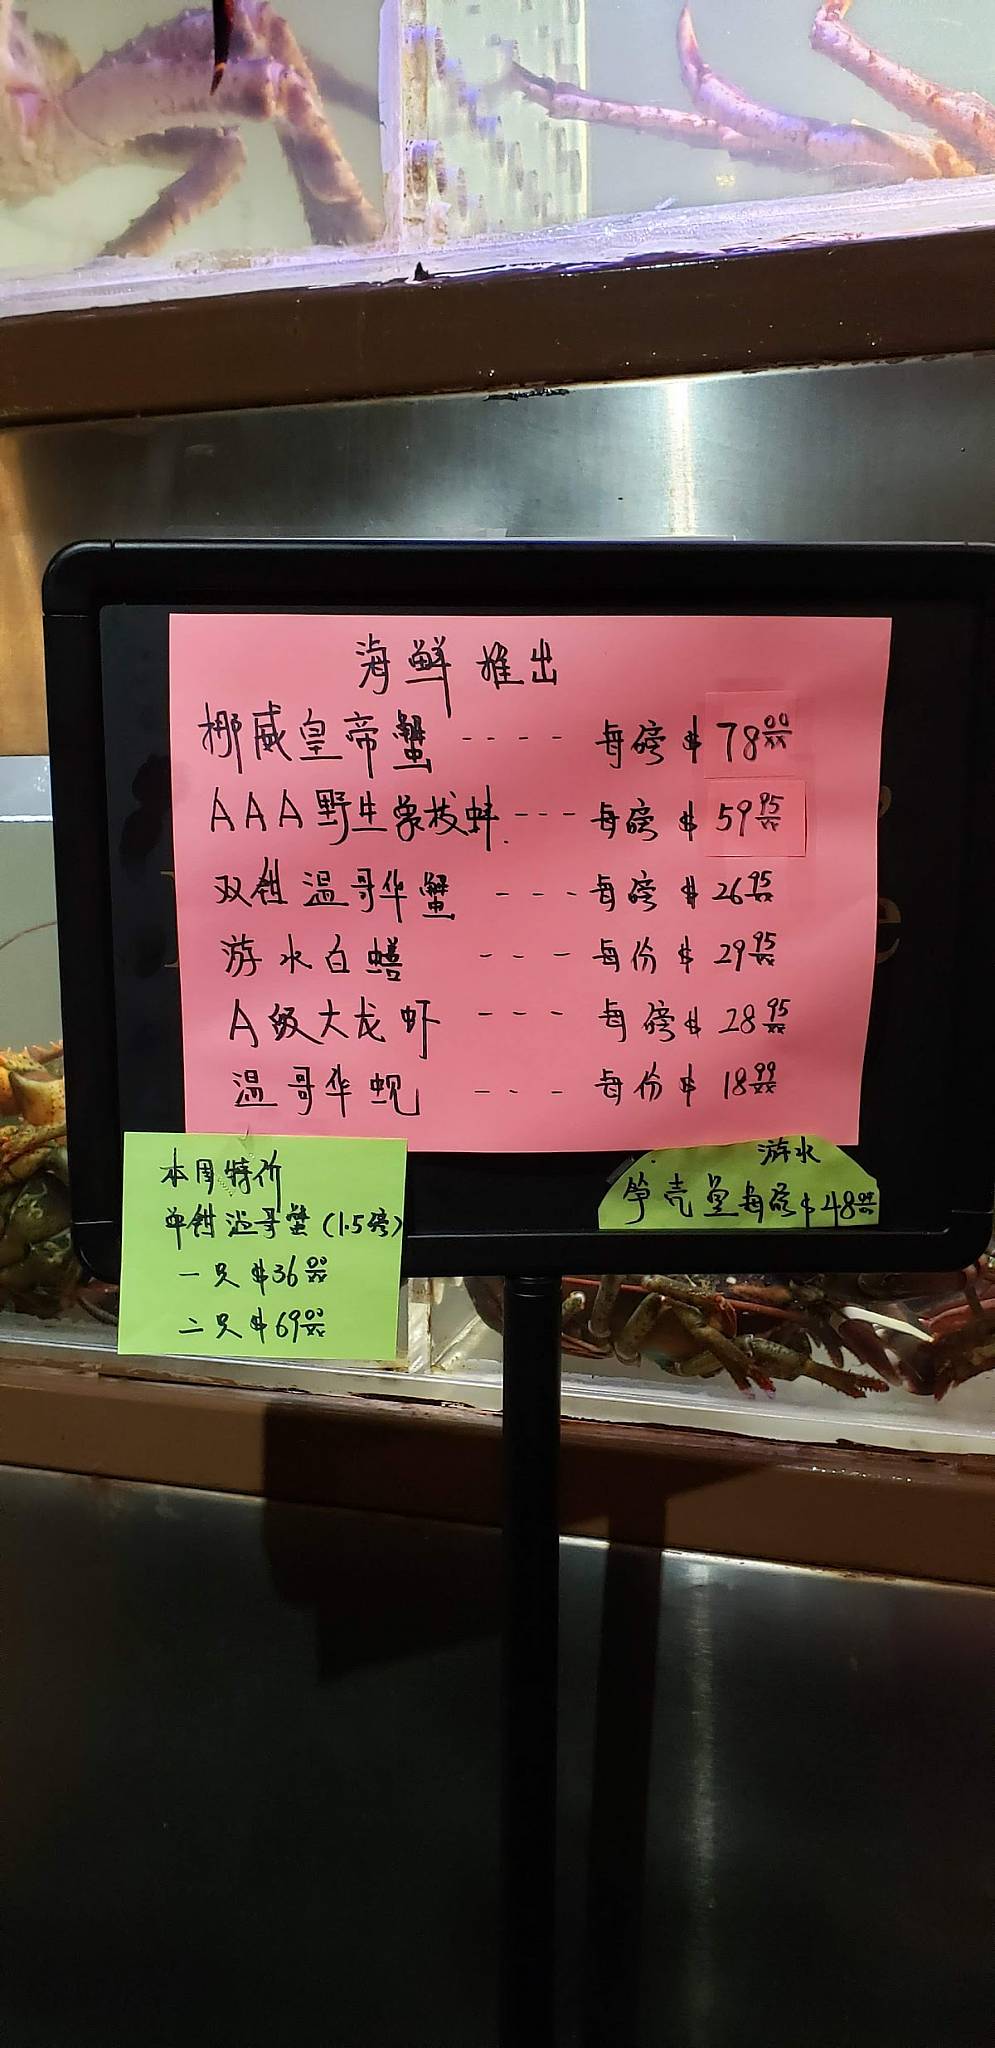 海鲜推出
挪威皇帝蟹 ---- 每磅 $ 78.00
AAA野生象拔蚌 --- 每磅 $ 59.95
双钳温哥华蟹 --- 每磅 $ 26.95
游水白蟮 --- 每份 $ 29.95
A级大龙虾 --- 每磅 $ 28.95
温哥华蚬 --- 每份 $ 18.99
本周特价
单钳温哥蟹(1.5磅)
一只 $36.00
二只 $69.00
游水
笋壳 每磅 $48.00